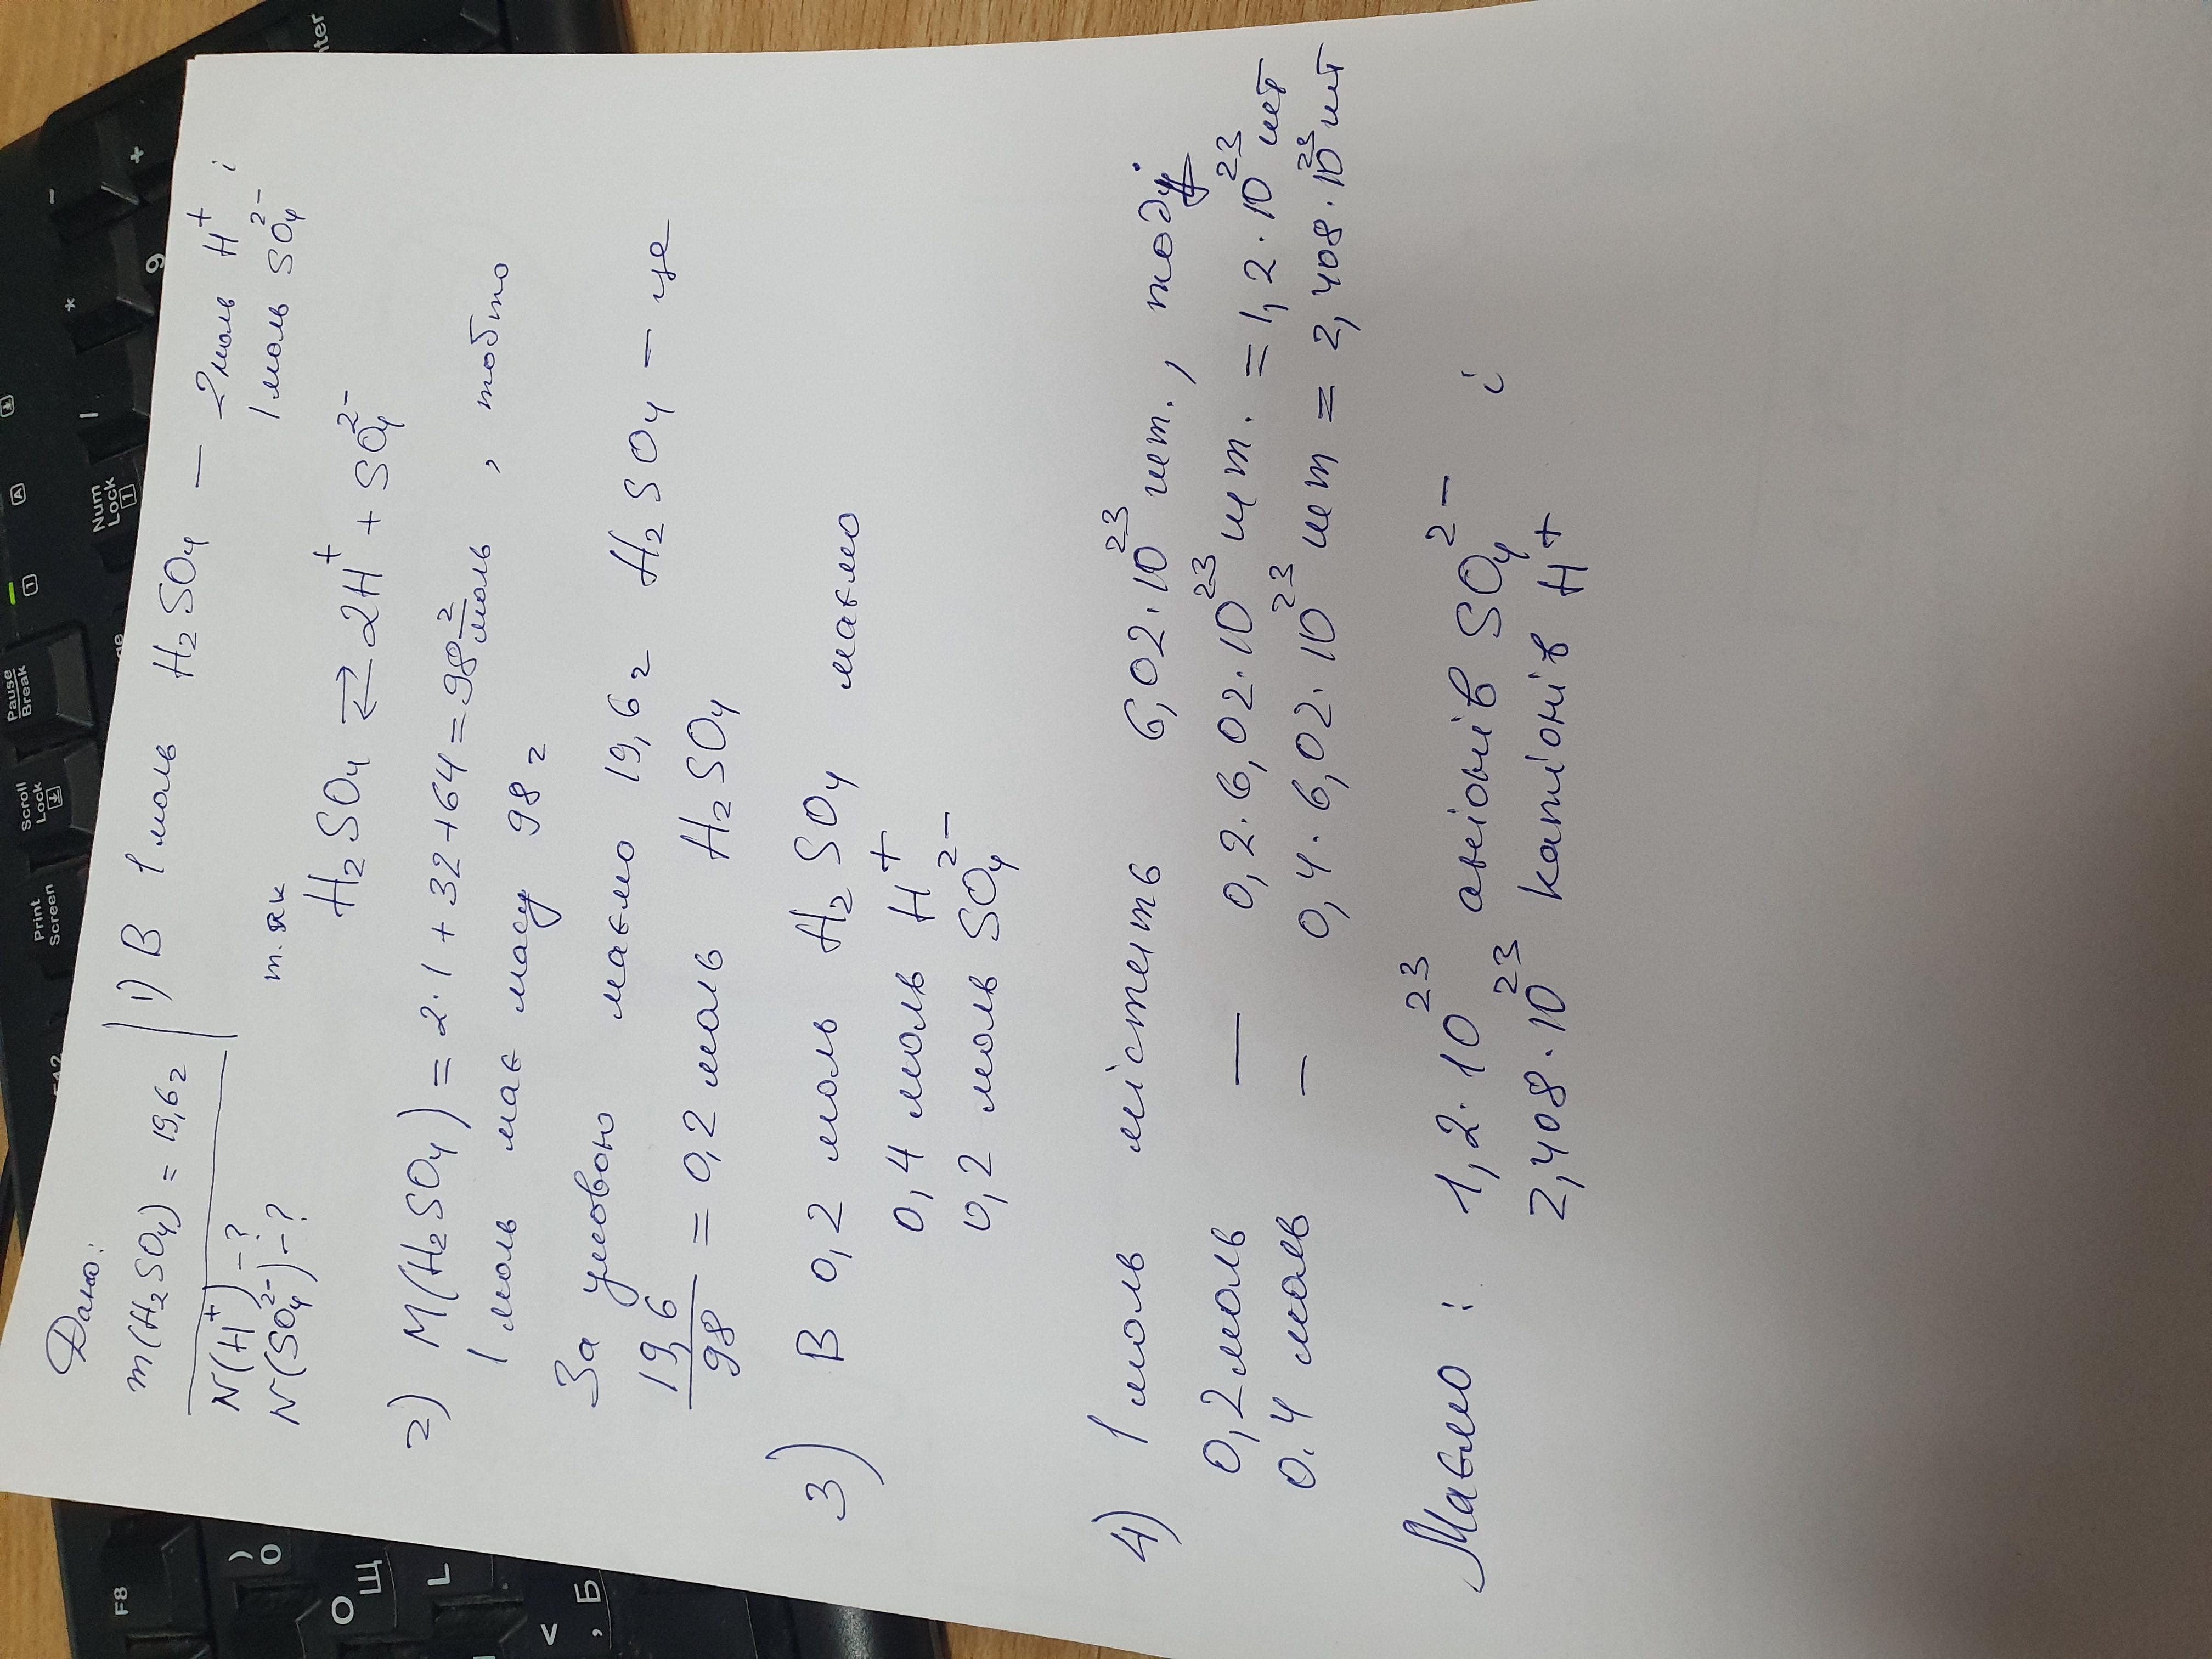 Дано:
m(H₂SO₄) = 19,6 г
N(H⁺) – ?
N(SO₄²⁻) – ?
1) В 1 моль H₂SO₄ — 2 моль H⁺ і
1 моль SO₄²⁻
т. як
H₂SO₄ ⇄ 2H⁺ + SO₄²⁻
2) M(H₂SO₄) = 2·1 + 32 + 64 = 98 г/моль, тобто
1 моль має масу 98 г
За умовою маємо 19,6 г H₂SO₄ – це
19,6/98 = 0,2 моль H₂SO₄
3) В 0,2 моль H₂SO₄ маємо
0,4 моль H⁺
0,2 моль SO₄²⁻
4) 1 моль містить 6,02·10²³ шт., тоді
0,2 моль — 0,2·6,02·10²³ шт. = 1,2·10²³ шт
0.4 моль – 0,4·6,02·10²³ шт = 2,408·10²³ шт
Маємо: 1,2·10²³ аніонів SO₄²⁻ і
2,408·10²³ катіонів H⁺
Print
Screen
Scroll
Lock
Pause
Break
Num
Lock
1
A
1
*
9
–
+
ter
F8
)
0
О
Щ
L
<
, Б